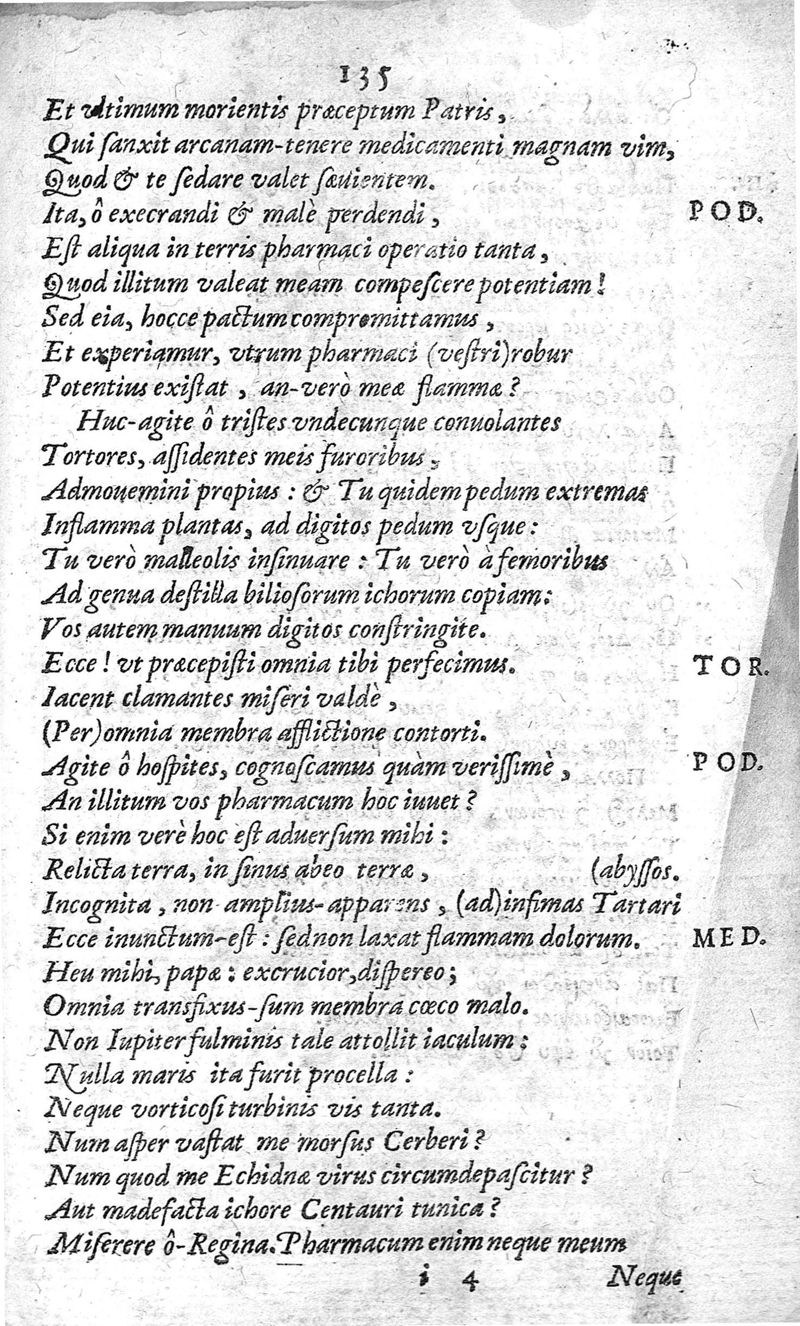 135
Et vltimum morientis præceptum Patris,
Qui ſanxit arcanam-tenere medicamenti magnam vim,
Quod & te ſedare valet ſæuientem.
Ita, ô execrandi & malè perdendi, POD.
Eſt aliqua in terris pharmaci operatio tanta,
Quod illitum valeat meam compeſcere potentiam!
Sed eia, hocce pactum compromittamus,
Et experiamur, vtrum pharmaci (veſtri) robur
Potentius exiſtat, an-verò meæ flammæ?
Huc-agite ô triſtes vndecunque conuolantes
Tortores, aſſidentes meis furoribus,
Admouemini propius: & Tu quidem pedum extremas
Inflamma plantas, ad digitos pedum vſque:
Tu verò malleolis inſinuare: Tu verò à femoribus
Ad genua deſtilla bilioſorum ichorum copiam:
Vos autem manuum digitos conſtringite.
Ecce! vt præcepiſti omnia tibi perfecimus. TOR.
Iacent clamantes miſeri valdè,
(Per) omnia membra afflictione contorti.
Agite ô hoſpites, cognoſcamus quàm veriſſimè, POD.
An illitum vos pharmacum hoc iuuet?
Si enim verè hoc eſt aduerſum mihi:
Relicta terra, in ſinus abeo terræ, (abyſſos.
Incognita, non amplius-apparens, (ad) infimas Tartari
Ecce inunctum-eſt: ſed non laxat flammam dolorum. MED.
Heu mihi, papæ: excrucior, diſpereo;
Omnia transfixus-ſum membra cœco malo.
Non Iupiter fulminis tale attollit iaculum:
Nulla maris ita furit procella:
Neque vorticoſi turbinis vis tanta.
Num aſper vaſtat me morſus Cerberi?
Num quod me Echidnæ virus circumdepaſcitur?
Aut madefacta ichore Centauri tunica?
Miſerere ô-Regina. Pharmacum enim neque meum
i 4 Neque